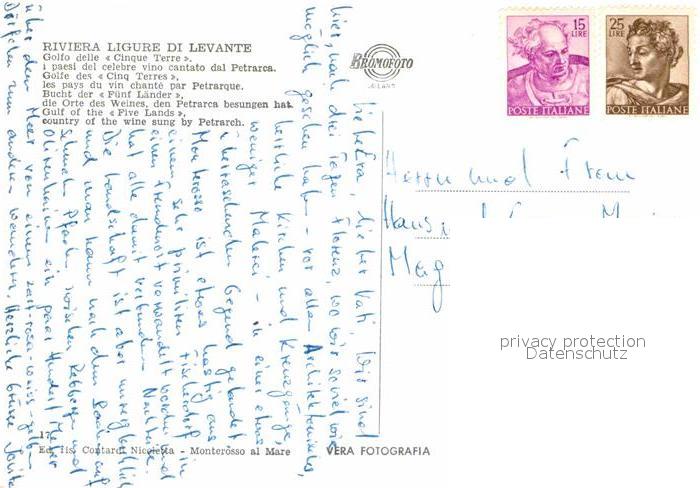 RIVIERA LIGURE DI LEVANTE
Golfo delle « Cinque Terre »,
i paesi del celebre vino cantato dal Petrarca.
Golfe des « Cinq Terres »,
les pays du vin chanté par Petrarque.
Bucht der « Fünf Länder »,
die Orte des Weines, den Petrarca besungen hat.
Gulf of the « Five Lands »,
country of the wine sung by Petrarch.
BROMOFOTO
MILANO
15
LIRE
POSTE ITALIANE
25
LIRE
POSTE ITALIANE
Herrn und Frau
Hans
privacy protection
Datenschutz
lieber Vati, Wir sind
hier, nach drei Tagen Florenz, wo wir soviel wie
möglich gesehen haben - vor allem Architektonisches,
herrliche Kirchen und Kreuzgänge,
weniger Malerei - in einer etwas
überraschenden Gegend gelandet.
Monterosso ist etwas hastig aus
einem sehr primitiven Fischerdorf in
einen Fremdenort verwandelt worden und
hat alle damit verbundenen Nachteile.
Die Landschaft ist aber unvergleichlich
und man kann nach dem Baden auf
schmalen Pfaden zwischen Rebbergen und
Olivenhainen ein paar Hundert Meter
über dem Meer von einem zart-rosa-weiss-gelben
Dörfchen zum andern wandern. Herzliche Grüsse
Ed. Ris. Contardi Nicoletta - Monterosso al Mare
VERA FOTOGRAFIA